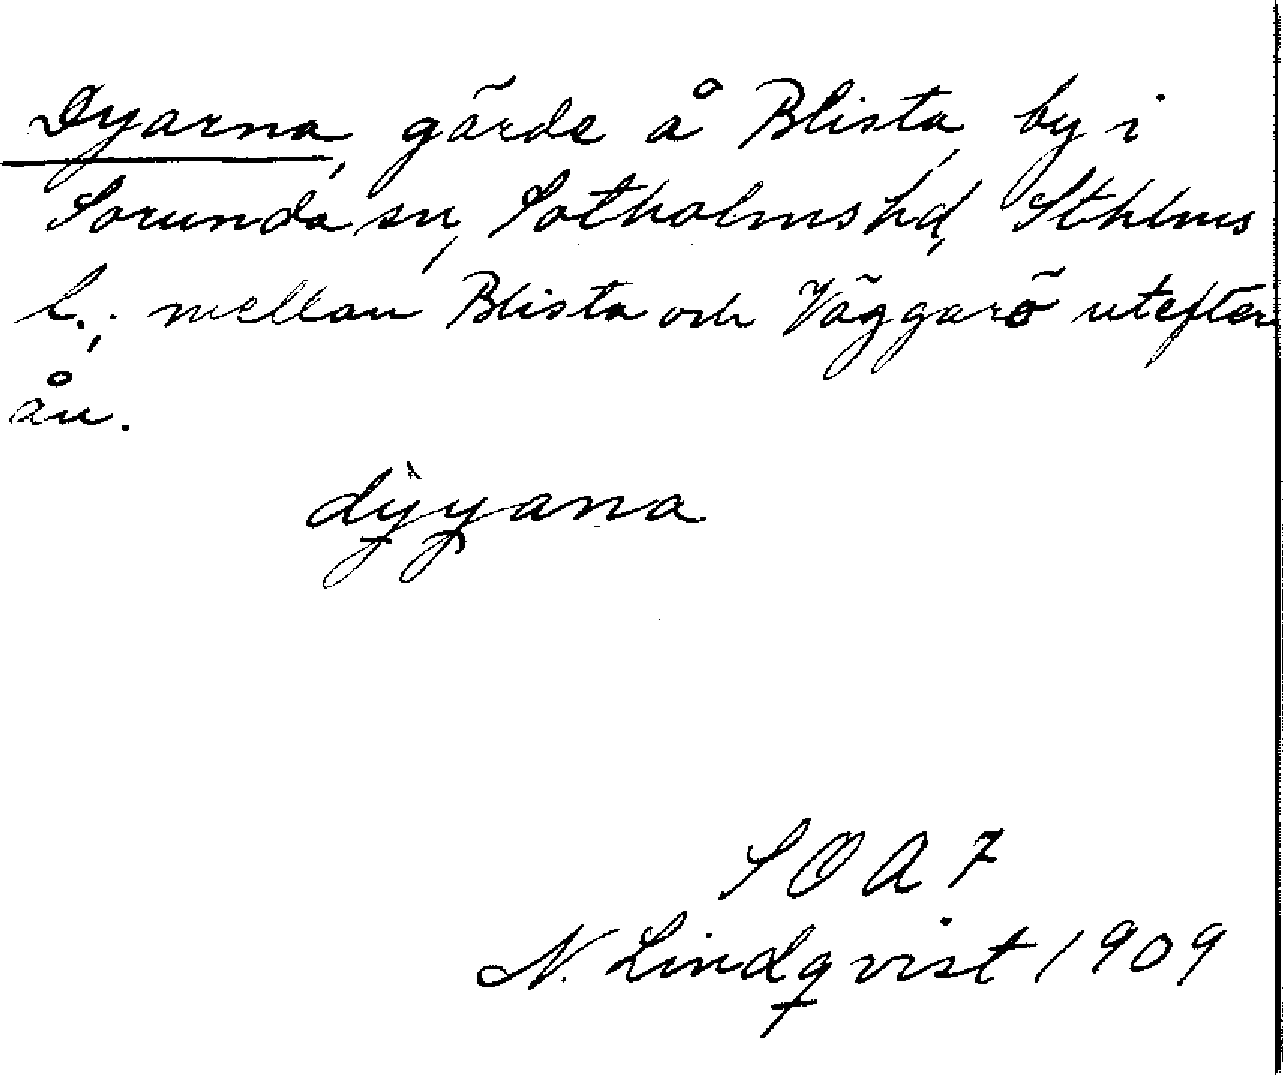 Dyarna, gärde å Blista by i
Sorunda sn, Sotholms hd, Sthlms
l.; mellan Blista och Väggarö utefter
ån.
dỳyana
SOAF
N. Lindqvist 1909